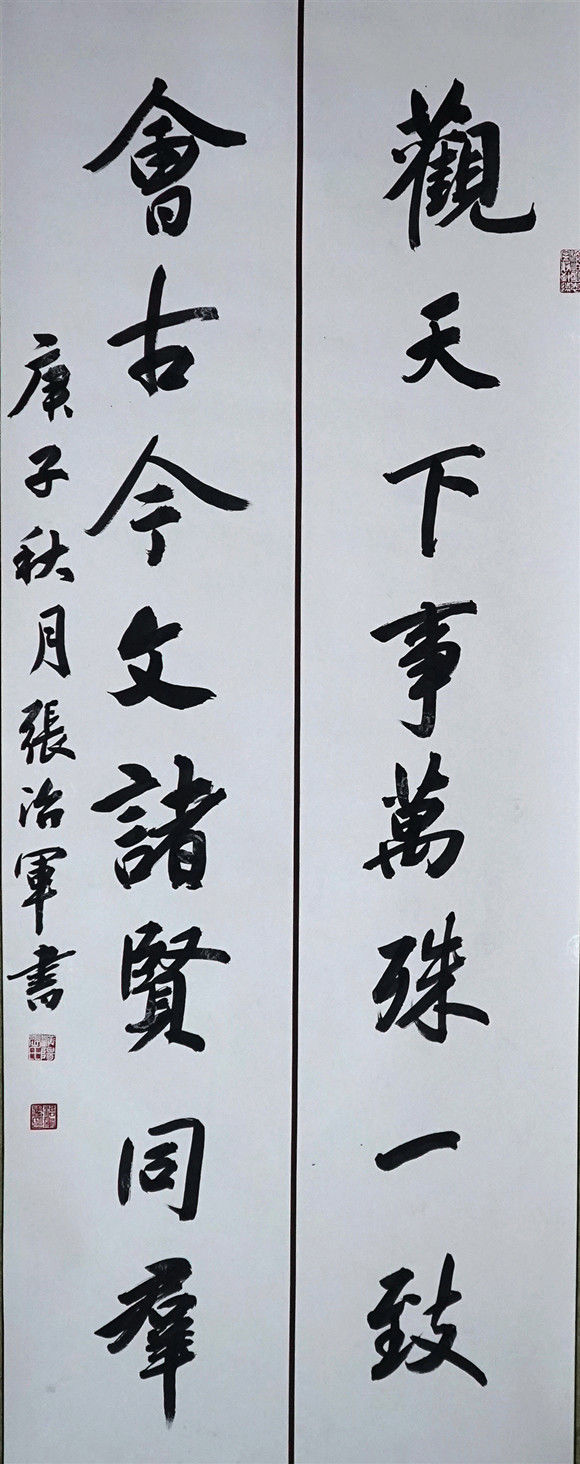 觀天下事萬殊一致
會古今文諸賢同羣
庚子秋月張治軍書